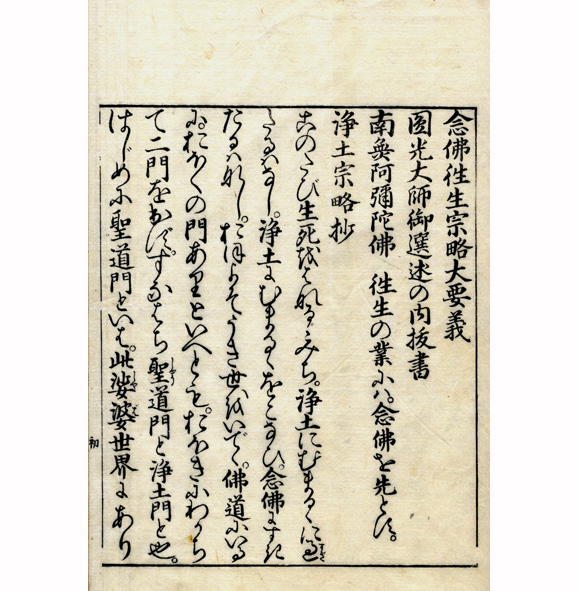 念佛徃生宗略大要義
圓光大師御選述の内抜書
南無阿彌陀佛 徃生の業にハ。念佛を先とす。
浄土宗略抄
このたび生死をはなるゝみち。浄土にむまるゝに過
たるハなし。浄土にむまるゝをこなひ。念佛にすき
たるハなし。おほよそうき世をいでゝ。佛道にいる
に。おほくの門ありといへとも。おほきにわかち
て二門を出す。すなはち聖道門と浄土門と也。
はじめに聖道門といは。此娑婆世界にあり
初